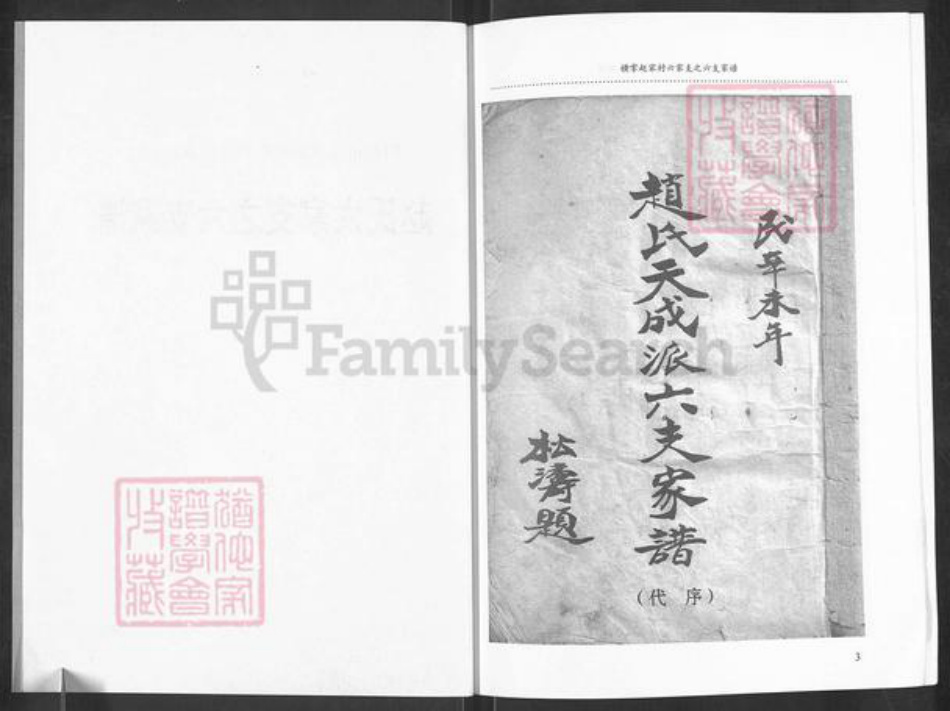 横掌赵家村六家支之六支家谱
民年未年
趙氏天成派六支家譜
(代 序)
松濤題
3
FamilySearch
猶他家譜學會收藏
猶他家譜學會收藏